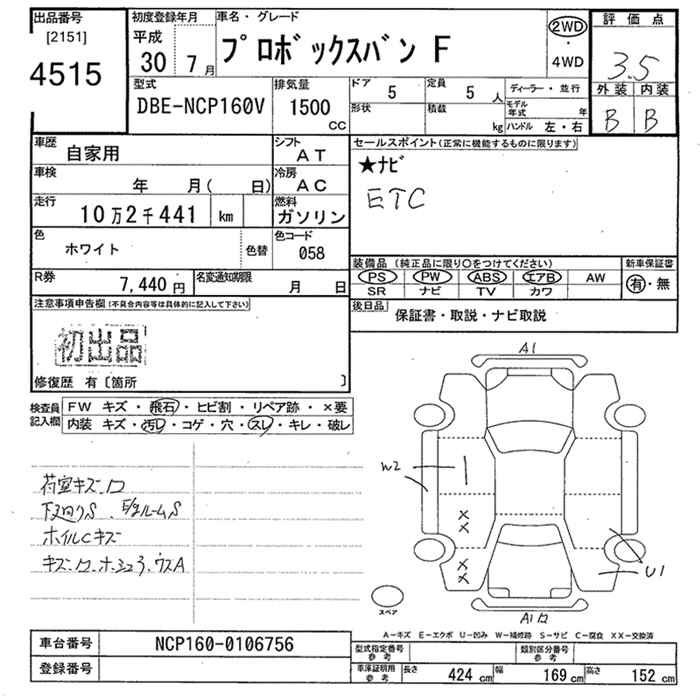 出品番号
[2151]
4515
初度登録年月
平成
30 7月
車名・グレード
プロボックスバン F
2WD
・
4WD
評価点
3.5
外装 内装
B B
型式
DBE-NCP160V
排気量
1500
CC
ドア 5
定員 5 人
形状
積載
kg
ディーラー・並行
モデル年式 年
ハンドル 左・右
車歴
自家用
シフト
AT
車検
年 月( 日)
冷房
AC
走行
10万2千441 km
燃料
ガソリン
色
ホワイト
色替
色コード
058
R券
7,440 円
名変通知期限
月 日
セールスポイント(正常に機能するものに限ります)
★ナビ
ETC
装備品 (純正品に限り○をつけてください)
PS PW ABS エアB AW
SR ナビ TV カワ
新車保証書
有・無
後日品
保証書・取説・ナビ取説
注意事項申告欄(不具合内容等は具体的に記入して下さい)
初出品
修復歴 有〔箇所 〕
検査員記入欄
FW キズ・飛石・ヒビ割・リペア跡・×要
内装 キズ・汚レ・コゲ・穴・スレ・キレ・破レ
荷室キズ.ロ
下廻りS.E/gルームS
ホイルCキズ
A1
W2
××
××
U1
スペア
A1ロ
A-キズ E-エクボ U-凹み W-補修跡 S-サビ C-腐食 XX-交換済
車台番号
NCP160-0106756
登録番号
型式指定番号
参考
類別区分番号
参考
車庫証明用
参考
長さ 424 cm
幅 169 cm
高さ 152 cm